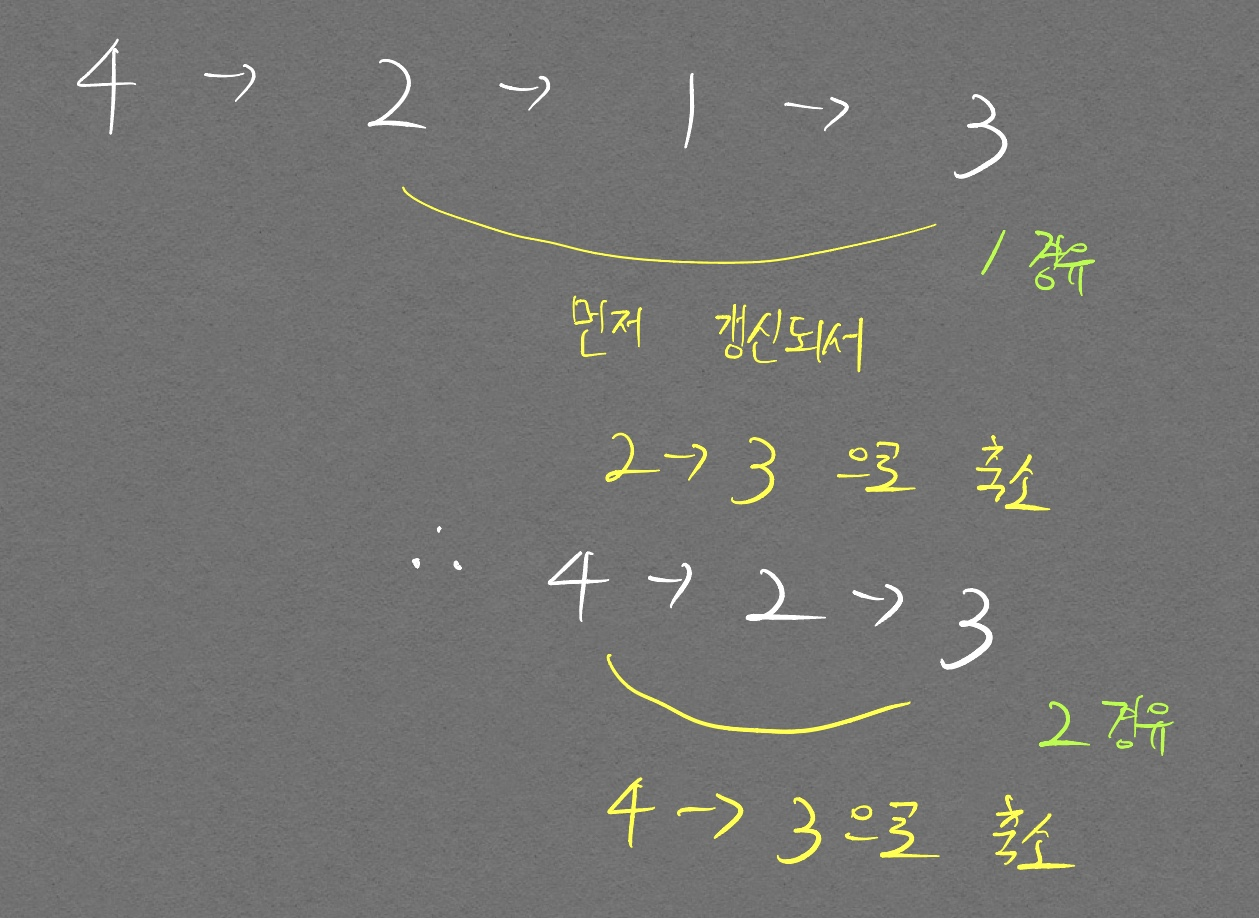 4 → 2 → 1 → 3
1 경유
먼저 갱신되서
2 → 3 으로 축소
∴ 4 → 2 → 3
2 경유
4 → 3으로 축소